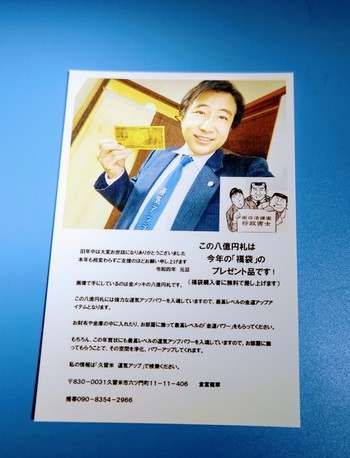 運気アップ
街の法律家
行政書士
この八億円札は
今年の「福袋」の
プレゼント品です!
(福袋購入者に無料で差し上げます)
旧年中は大変お世話になりありがとうございました
本年も相変わらずご支援のほどお願い申し上げます
令和四年 元旦
画像で手にしているのは金メッキの八億円札です。
この八億円札には強力な運気アップパワーを入魂していますので、最高レベルの金運アップア
イテムとなります。
お財布や金庫の中に入れたり、お部屋に飾って最高レベルの「金運パワー」をもらってください。
もちろん、この年賀状にも最高レベルの運気アップパワーを入魂していますので、お部屋に飾
ってもらうことで、その空間を浄化、パワーアップしてくれます。
私の情報は「久留米 運気アップ」で検索ください。
〒830-0031久留米市六ツ門町11-11-406
携帯090-8354-2966